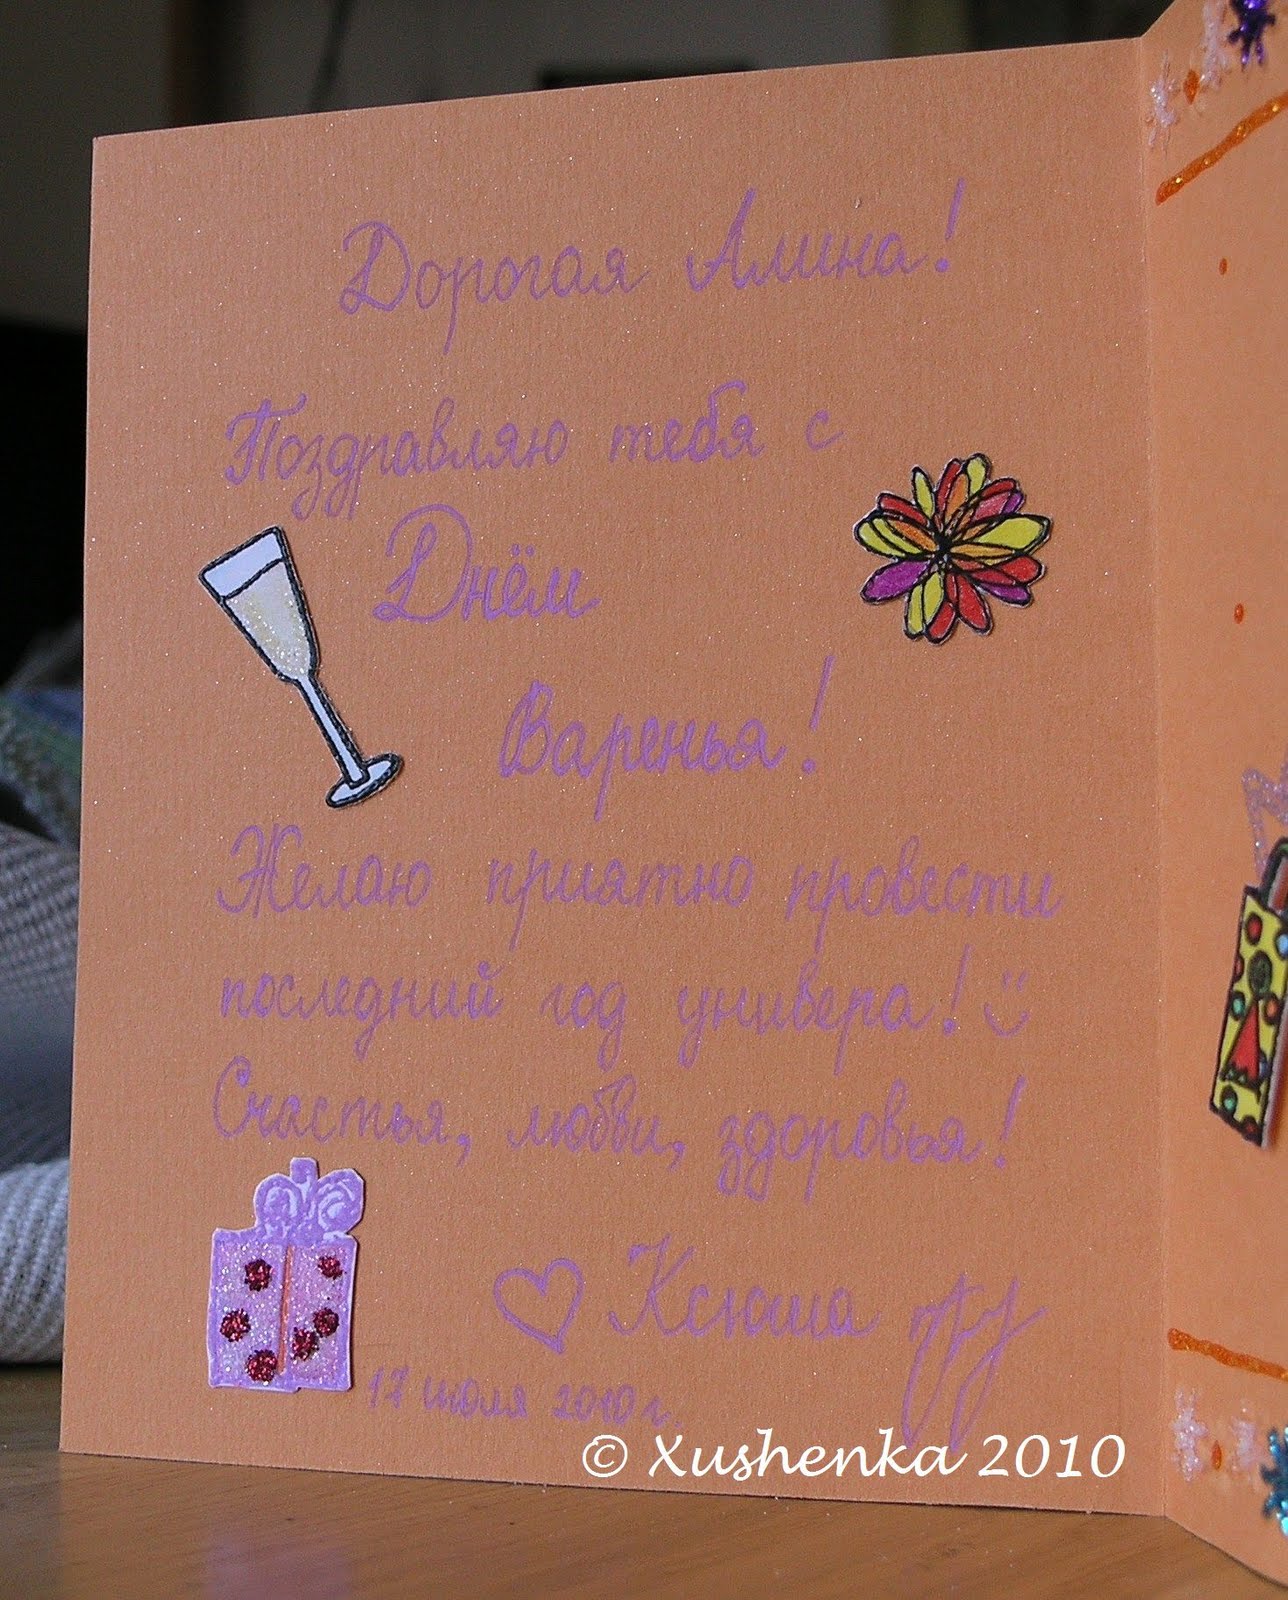 Дорогая Алина!
Поздравляю тебя с
Днём
Варенья!
Желаю приятно провести
последний год универа! :)
Счастья, любви, здоровья!
♡ Ксюша
17 июля 2010 г.
© Xushenka 2010